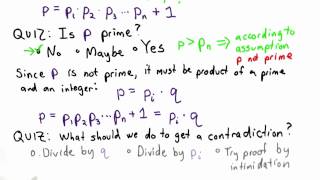 P = P₁ · P₂ · P₃ ··· Pₙ + 1
QUIZ: Is P prime? → according to
→ No Maybe Yes P > Pₙ ⇒ assumption
P not prime
Since P is not prime, it must be product of a prime
and an integer:
P = Pᵢ · q
P = P₁ P₂ P₃ ··· Pₙ + 1 = Pᵢ · q
QUIZ: What should we do to get a contradiction?
Divide by q Divide by Pᵢ Try proof by
intimidation